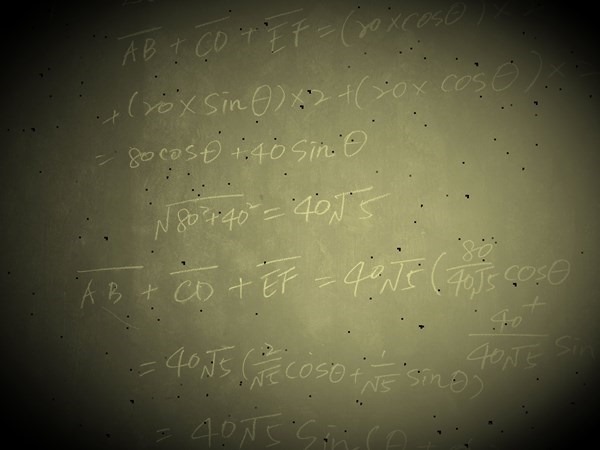 AB + CD + EF = (20×cosθ)×
+(20×sinθ)×2+(20×cosθ)×2
= 80cosθ+40sinθ
√80²+40² = 40√5
AB + CD + EF = 40√5(80/40√5 cosθ
+ 40/40√5 sin
= 40√5(2/√5 cosθ+1/√5 sinθ)
= 40√5 sin(θ+